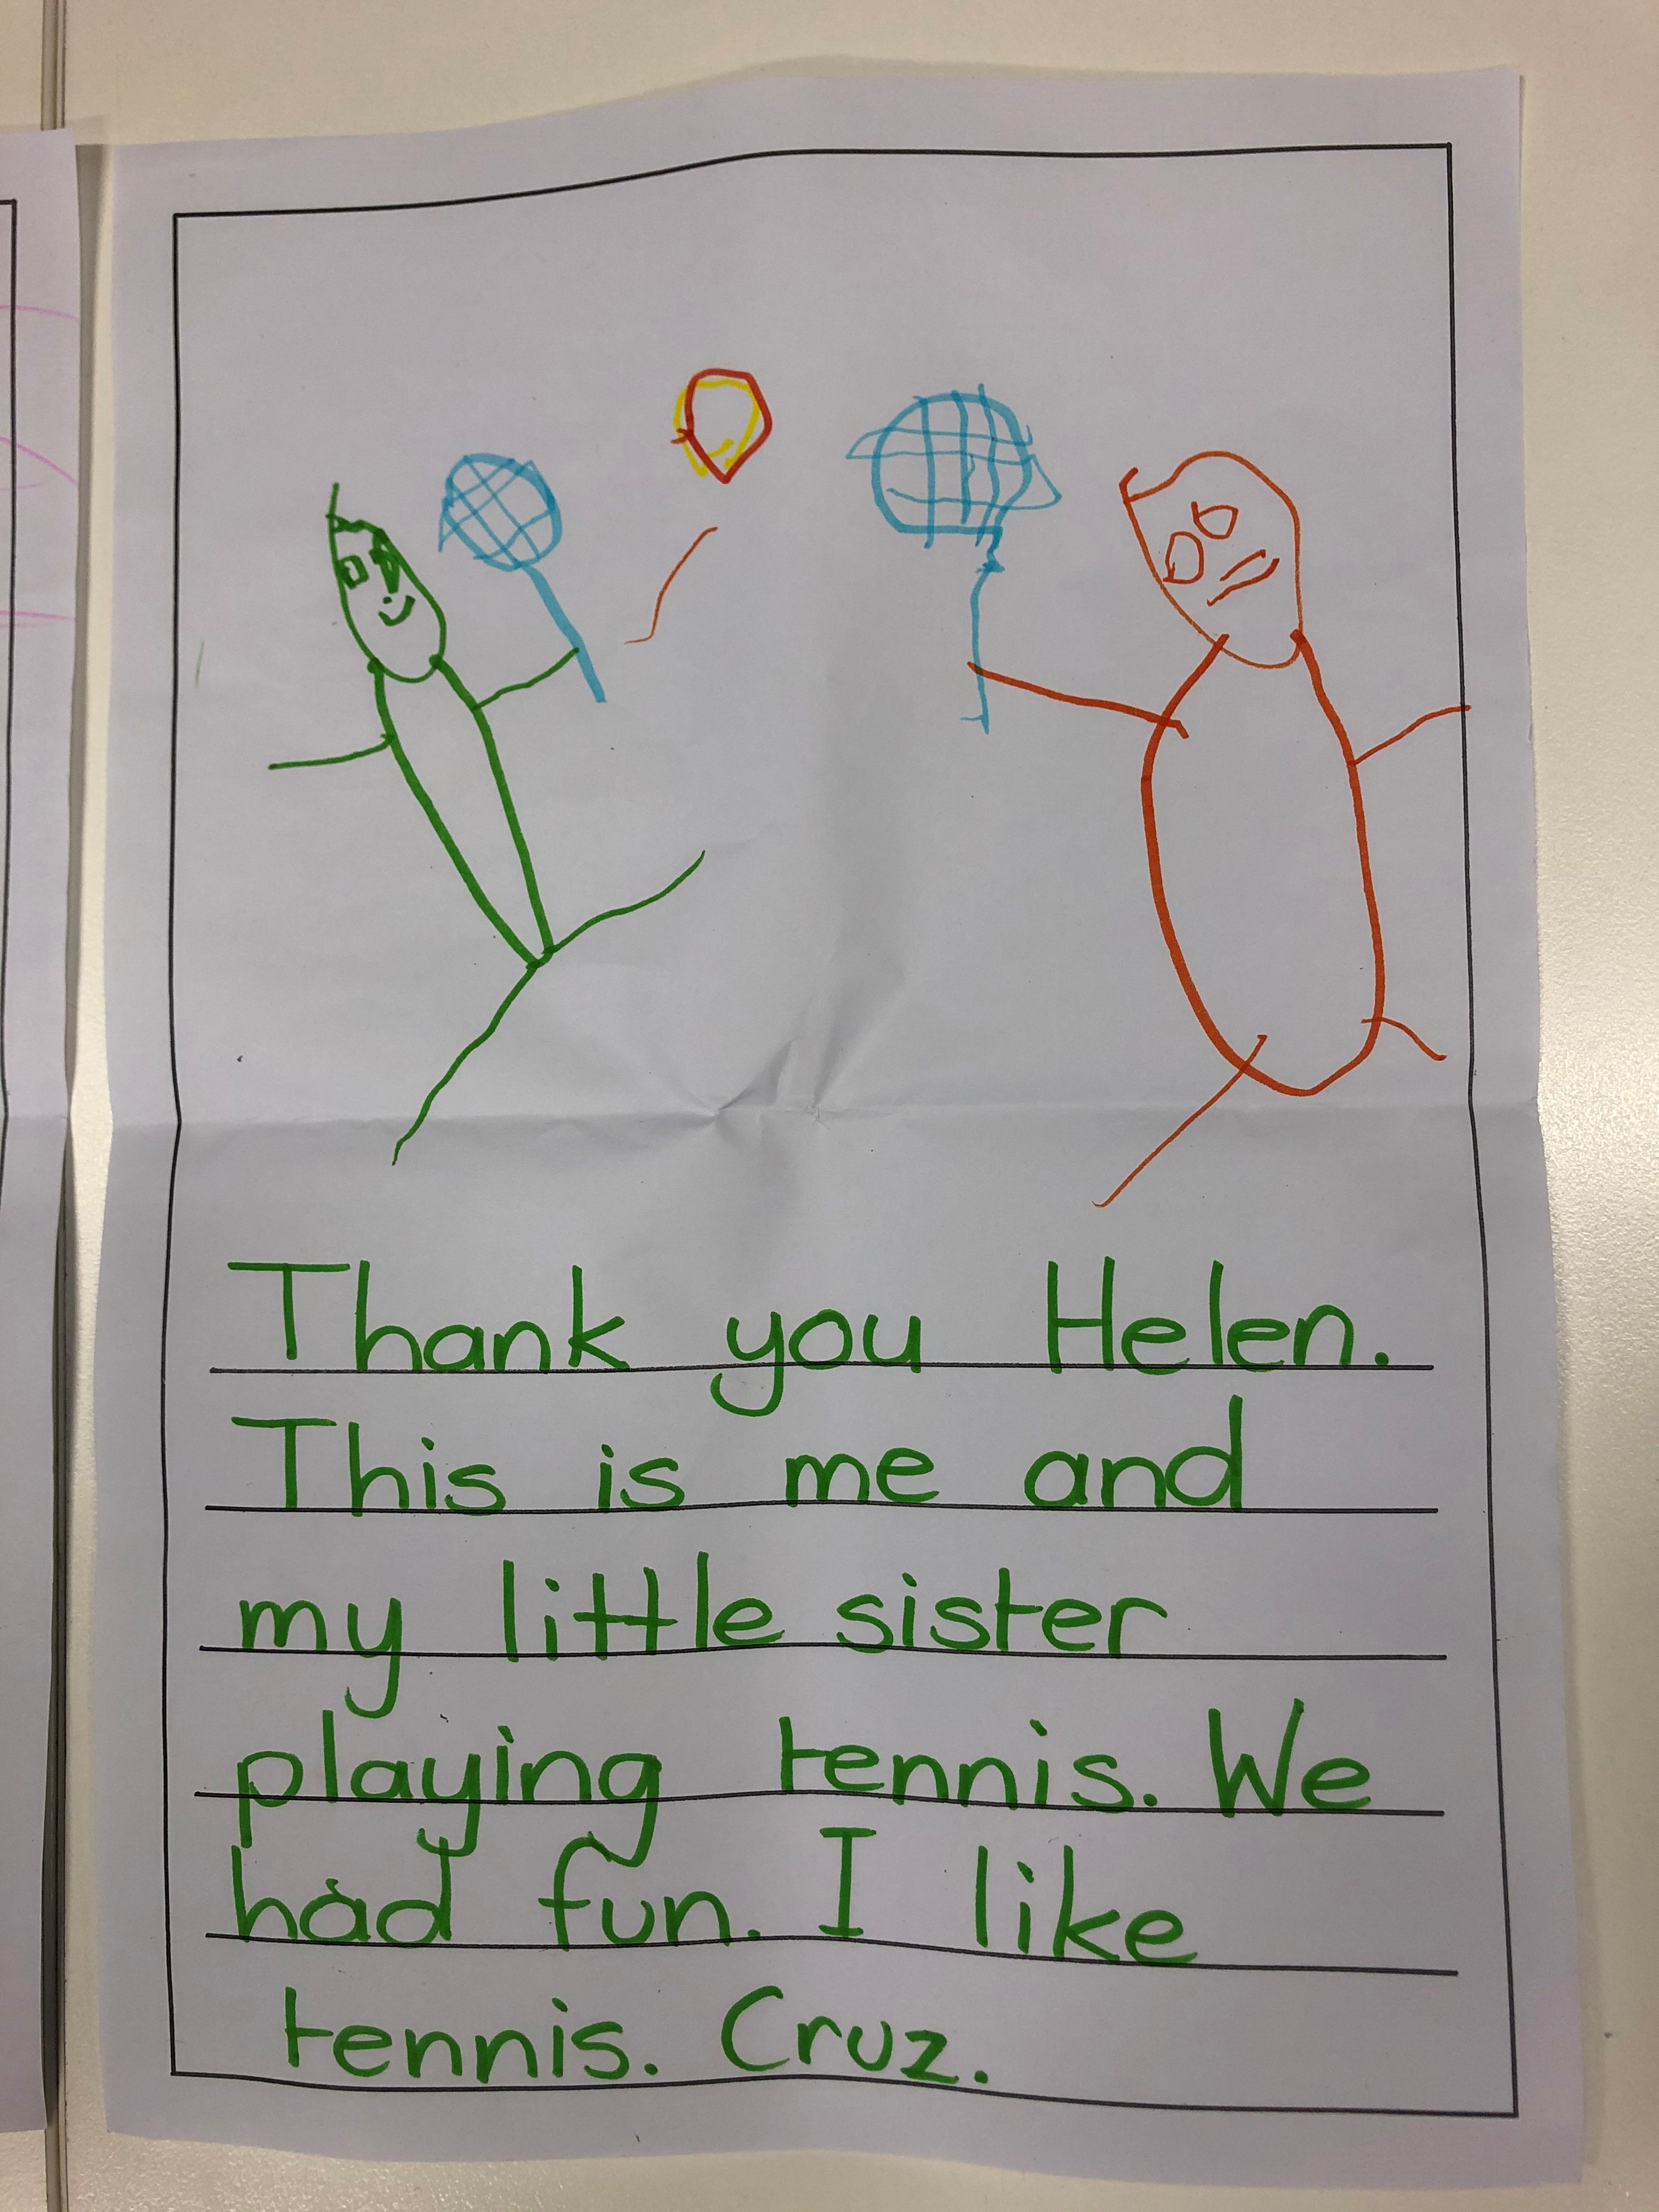 Thank you Helen.
This is me and
my little sister
playing tennis. We
had fun. I like
tennis. Cruz.